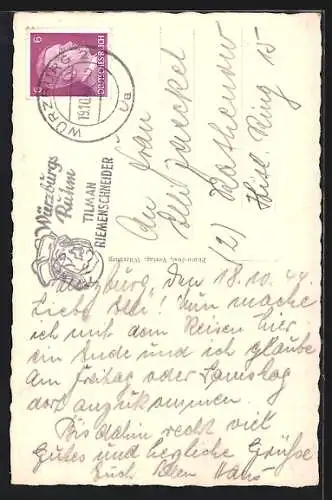 6
DEUTSCHES REICH
WÜRZBURG 2
19.10.
Ua
Würzburgs
Ruhm
TILMAN
RIEMENSCHNEIDER
An Frau
(2) Rathenow
Ring 15
Würzburg, den 18.10.44.
Liebe Nun mache
ich mit dem Reisen hier
ein Ende und ich glaube
am Freitag oder Samstag
dort anzukommen.
Bis dahin recht viel
Gutes und herzliche Grüße
Euch Allen Hans